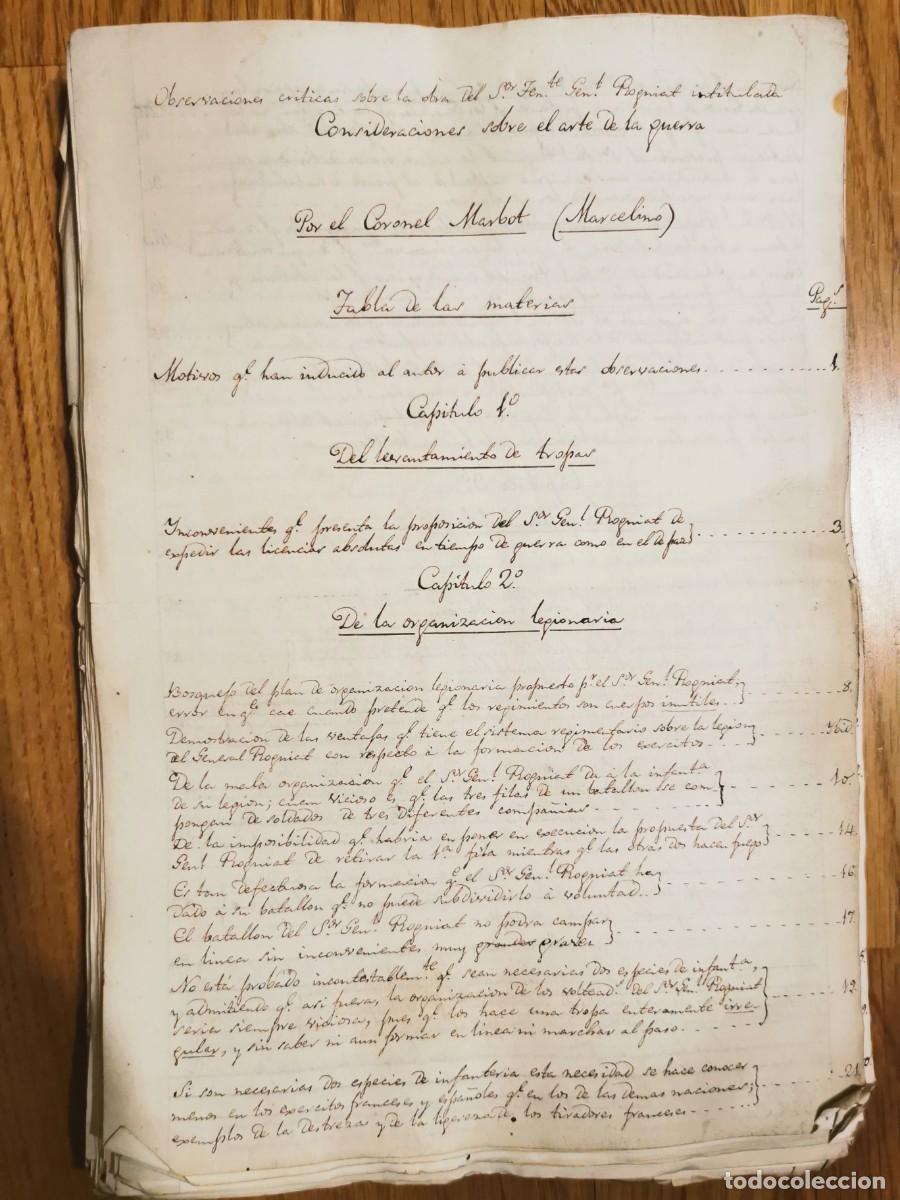 Observaciones criticas sobre la obra del S.or Ten.te Gen.l Rogniat intitulada
Consideraciones sobre el arte de la guerra
Por el Coronel Marbot (Marcelino)
Tabla de las materias Pag.s
Motivos q.e han inducido al autor à publicar estas observaciones 1.
Capitulo 1.o
Del levantamiento de tropas
Inconvenientes q.e presenta la proposicion del S.or Gen.l Rogniat de
expedir las licencias absolutas en tiempo de guerra como en el de paz 3.
Capitulo 2.o
De la organizacion legionaria
Bosquejo del plan de organizacion legionaria propuesto p.r el S.or Gen.l Rogniat; 8.
error en q.e cae cuando pretende q.e los regimientos son cuerpos inutiles
Demostracion de las ventajas q.e tiene el sistema regimentario sobre la legion
del General Rogniat con respecto à la formacion de los exercitos Ybid.
De la mala organizacion q.e el S.or Gen.l Rogniat da à la infant.a
de su legion; cuan vicioso es q.e las tres filas de un batallon se com- 10.
pongan de soldados de tres diferentes compañias
De la imposibilidad q.e habria en poner en execucion la propuesta del S.or 14.
Gen.l Rogniat de retirar la 1.a fila mientras q.e las otras dos hacen fuego
Es tan defectuosa la formacion q.e el S.or Gen.l Rogniat ha 16.
dado à su batallon q.e no puede subdividirlo à voluntad
El batallon del S.or Gen.l Rogniat no podra campar 17.
en linea sin inconvenientes muy grandes graves
No está probado incontestablem.te q.e sean necesarias dos especies de infant.a,
y admitiendo q.e asi fuera, la organizacion de los voltead.s del S.or Gen.l Rogniat 19.
seria siempre viciosa, pues q.e los hace una tropa enteramente irre-
gular, y sin saber ni aun formar en linea ni marchar al paso
Si son necesarias dos especies de infanteria esta necesidad se hace conocer
menos en los exercitos franceses y españoles q.e en los de las demas naciones; 21
exemplos de la destreza y de la ligereza de los tiradores franceses
todocoleccion